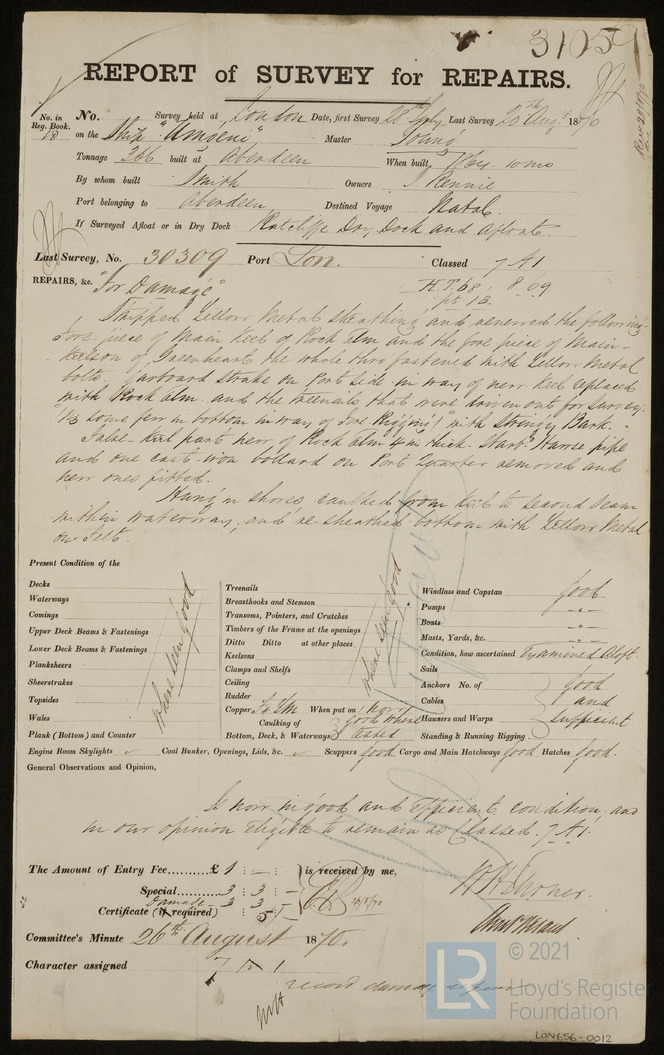 31059
REPORT of SURVEY for REPAIRS.
No. in Reg. Book. No. Survey held at London Date, first Survey Last Survey 20th Augt 1870
18 on the Ship "Umgeni" Master Young
Tonnage 366 built at Aberdeen When built,
By whom built Smith Owners J. Rennie
Port belonging to Aberdeen Destined Voyage Natal.
If Surveyed Afloat or in Dry Dock Ratcliffe Dry Dock and Afloat.
Last Survey, No. 30309 Port Lon. Classed 7 A 1
REPAIRS, &c. "For Damage" 8 69
Stripped Yellow Metal Sheathing and renewed the following
Fore piece of Main Keel of Rock Elm and the fore piece of Main
Keelson of Greenheart the whole thro fastened with Yellow Metal
bolts. Garboard Strake on Port side in way of new Keel replaced
with Rock Elm. and the treenails that were driven out for Survey.
some few in bottom in way of Fore Rigging" with Stringy Bark.
False Keel part new of Rock Elm 4 in thick. Starbd Hawse pipe
and one cast iron bollard on Port Quarter removed and
new ones fitted.
Hung in shores, caulked from Keel to second seam
within waterway, and re sheathed bottom with Yellow Metal
on Felt.
Present Condition of the
Decks
Waterways
Comings
Upper Deck Beams & Fastenings
Lower Deck Beams & Fastenings
Planksheers
Sheerstrakes
Topsides
Wales
Plank (Bottom) and Counter
Where seen good
Treenails
Breasthooks and Stemson
Transoms, Pointers, and Crutches
Timbers of the Frame at the openings
Ditto Ditto at other places
Keelsons
Clamps and Shelfs
Ceiling
Rudder
Where seen good
Copper When put on now
Caulking of Bottom, Deck, & Waterways good where tested
Windlass and Capstan good
Pumps "
Boats "
Masts, Yards, &c. "
Condition, how ascertained Examined Aloft
Sails
Anchors No. of good
Cables and
Hausers and Warps sufficient
Standing & Running Rigging
Engine Room Skylights Coal Bunker, Openings, Lids, &c. Scuppers good Cargo and Main Hatchways good Hatches good.
General Observations and Opinion,
Is now in good and efficient condition and
in our opinion eligible to remain as Classed. 7 A 1.
The Amount of Entry Fee £ 1 : — : is received by me,
Special 3 : 3 : —
Damage 3 3
Certificate (if required) : 5 : —
Committee's Minute 26th August 1870.
Character assigned 7 A 1
record damage
© 2021
LR
Lloyd's Register
Foundation
LON656-0012